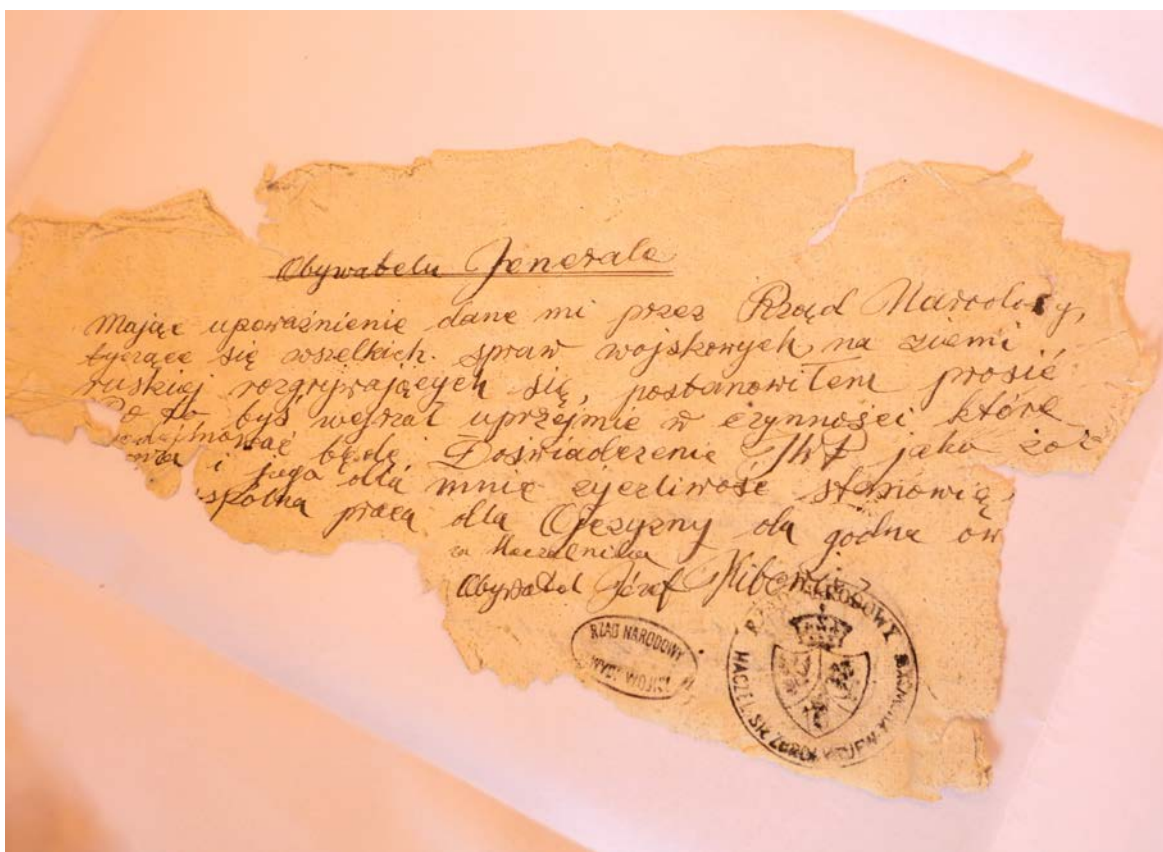 Obywatelu Jenerale
Mając upoważnienie dane mi przez Rząd Narodowy,
tyczące się wszelkich spraw wojskowych, na ziemi
ruskiej rozgrywających się, postanowiłem prosić
Po to byś wejrzał uprzejmie w czynności które
podejmować będę Doświadczenie JWP jako żoł
i jego dla mnie życzliwość stanowią
spólna praca dla Ojczyzny ola godna ow
za Naczelnika
Obywatel Józef
RZĄD NARODOWY
WYDZ WOJNY
RZĄD NARODOWY
NACZEL. SIŁ ZBROJ